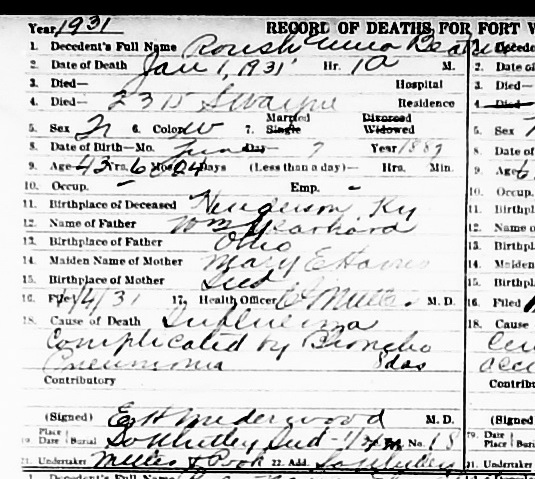 Year 1931 RECORD OF DEATHS FOR FORT W
1. Decedent's Full Name Roush Anna Beatrice
2. Date of Death Jan 1, 1931 Hr. 10 M.
3. Died— Hospital
4. Died— 2315 Swayne Residence
Married Divorced
5. Sex 6. Color W 7. Single Widowed
8. Date of Birth—Mo. Day 7 Year 1887
9. Age 43 Yrs. 6 Mos. 24 Days (Less than a day)— Hrs. Min.
10. Occup. – Emp. –
11. Birthplace of Deceased Henderson Ky
12. Name of Father Wm
13. Birthplace of Father Ohio
14. Maiden Name of Mother Mary E Harris
15. Birthplace of Mother Ind
16. Filed 1/4/31 17. Health Officer Miller M. D.
18. Cause of Death Influenza
Complicated by Broncho
Pneumonia 8 das
Contributory
(Signed) E H Underwood M. D.
19. Place Date Burial So Whitley Ind - No. 18
21. Undertaker Miller & Pook 22. Add. So Whitley
1. Decedent's Full Name
1. Decede
2. Date of
3. Died—
4. Died
5. Sex
8. Date of
9. Age
10. Occup.
11. Birthpl
12. Name o
13. Birthpl
14. Maiden
15. Birthpl
16. Filed
18. Cause
Contribut
(Signed)
19. Place Date
21. Undert